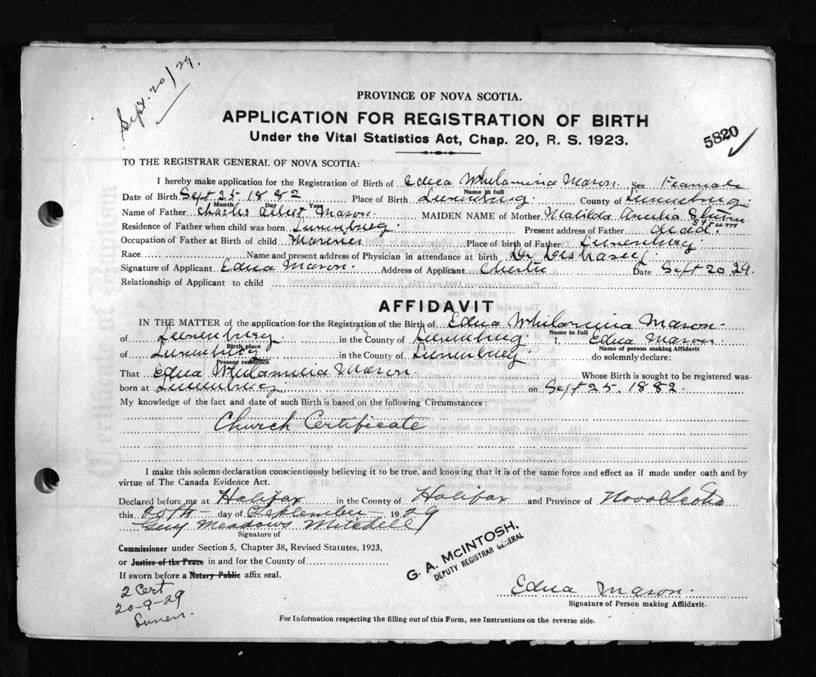 Sept. 20/29.
PROVINCE OF NOVA SCOTIA.
APPLICATION FOR REGISTRATION OF BIRTH
Under the Vital Statistics Act, Chap. 20, R. S. 1923.
5820
TO THE REGISTRAR GENERAL OF NOVA SCOTIA:
I hereby make application for the Registration of Birth of Edna Whilamina Mason. Sex Feamale
Name in full
Date of Birth Sept 25 1882 Place of Birth Lunenburg County of Lunenburg
Month Day Year
Name of Father Charles Albert Mason. MAIDEN NAME of Mother Matilda Amelia
Residence of Father when child was born Lunenburg. Present address of Father dead.
Occupation of Father at Birth of child Marener Place of Birth of Father Lunenburg
Race Name and present address of Physician in attendance at birth Dr
Signature of Applicant Edna Mason. Address of Applicant Chester Date Sept 20 29.
Relationship of Applicant to child
AFFIDAVIT
IN THE MATTER of the application for the Registration of the Birth of Edna Whilamina Mason.
Name in full
of Lunenburg in the County of Lunenburg I, Edna Mason.
Birth place Name of person making Affidavit
of Lunenburg in the County of Lunenburg do solemnly declare:
Present residence
That Edna Whilamina Mason Whose Birth is sought to be registered was
born at Lunenburg on Sept 25. 1882.
My knowledge of the fact and date of such Birth is based on the following Circumstances:
Church Certificate
I make this solemn declaration conscientiously believing it to be true, and knowing that it is of the same force and effect as if made under oath and by
virtue of The Canada Evidence Act.
Declared before me at Halifax in the County of Halifax and Province of Nova Scotia
this 20th day of September 1929
Guy Meadows Mitchell
Signature of
Commissioner under Section 5, Chapter 38, Revised Statutes, 1923,
or Justice of the Peace in and for the County of
If sworn before a Notary Public affix seal.
G. A. McINTOSH,
DEPUTY REGISTRAR GENERAL
2 Cert
20-9-29
Lunen.
Edna Mason.
Signature of Person making Affidavit.
For Information respecting the filling out of this Form, see Instructions on the reverse side.